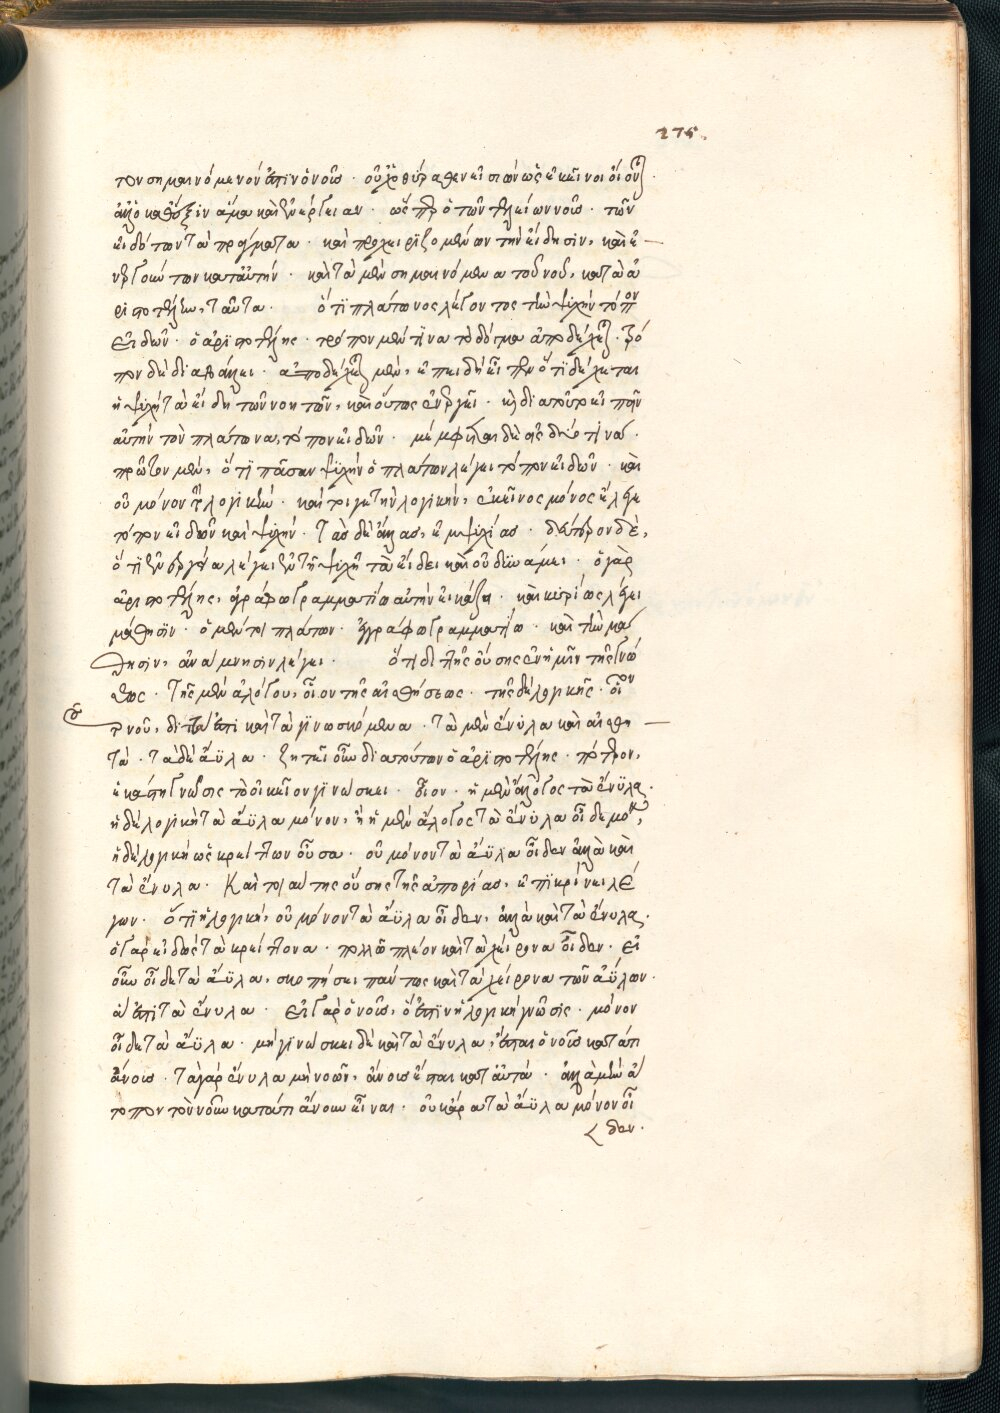 275.
τον σημαινόμενόν ἐστιν ὁ νοῦς · οὐχ ὁ θύραθεν εἰσιὼν ὡς ἐκεῖνοι οἴονται ·
ἀλλ' ὁ καθ' ἕξιν ἅμα καὶ ἐνέργειαν · ὥσπερ ὁ τῶν τελείων νοῦς · τῶν
εἰδότων τὰ πράγματα · καὶ προχειριζομένων τὴν εἴδησιν, καὶ ἐ
νεργούντων κατ' αὐτήν · καὶ τὰ μὲν σημαινόμενα τοῦ νοῦ, κατὰ ἀ
ριστοτέλην, ταῦτα · ὅτι πλάτωνος λέγοντος τὴν ψυχὴν τόπον
εἰδῶν · ὁ ἀριστοτέλης · τρόπον μέν τινα τὸ δόγμα ἀποδέχεται · τρό
πον δὲ διαβάλλει · ἀποδέχεται μὲν, ἐπειδὴ εἶπεν ὅτι δέχεται
ἡ ψυχὴ τὰ εἴδη τῶν νοητῶν, καὶ οὕτως ἐνεργεῖ · κ διὰ τοῦτο εἰπεῖν
αὐτὴν τὸν πλάτωνα, τόπον εἰδῶν · μέμφεται δὲ εἰς δύο τινά ·
πρῶτον μὲν, ὅτι πᾶσαν ψυχὴν ὁ πλάτων λέγει τόπον εἰδῶν · καὶ
οὐ μόνον τὴν λογικήν · καίτοιγε τὴν λογικὴν, ἐκεῖνος μόνος ἔλεγε
τόπον εἰδῶν καὶ ψυχήν · τὰς δὲ ἄλλας, ἐμψυχίας · δεύτερον δὲ,
ὅτι ἐνεργείᾳ λέγει ἐν τῇ ψυχῇ τὰ εἴδει καὶ οὐ δυνάμει · ὁ γὰρ
ἀριστοτέλης, ἀγράφῳ γραμματίῳ αὐτὴν εἰκάζει · καὶ κυρίως λέγει
μάθησιν · ὁ μέντοι πλάτων · ἐγγράφῳ γραμματίῳ · καὶ τὴν μά
θησιν, ἀνάμνησιν λέγει · ὅτι διττῆς οὔσης ἐν ἡμῖν τῆς γνώ
σεως · τῆς μὲν ἀλόγου, οἷον τῆς αἰσθήσεως · τῆς δὲ λογικῆς · οἷον
τοῦ νοῦ, διττὰ ἐστι καὶ τὰ γινωσκόμενα · τὰ μὲν ἔνυλα καὶ αἰσθη
τά · τὰ δὲ ἄϋλα · ζητεῖ οὖν διὰ τοῦτον ὁ ἀριστοτέλης · πότερον,
ἑκάστη γνῶσις τὸ οἰκεῖον γινώσκει · οἷον · ἡ μὲν ἄλογος τὰ ἔνϋλα ·
ἡ δὲ λογικὴ τὰ ἄϋλα μόνον, ἢ ἡ μὲν ἄλογος τὰ ἔνϋλα οἶδε μόνον,
ἡ δὲ λογικὴ ὡς κρείττων οὖσα · οὐ μόνον τὰ ἄϋλα οἶδεν ἀλλὰ καὶ
τὰ ἔνυλα · Καὶ τοιαύτης οὔσης τῆς ἀπορίας, ἐπικρίνει λέ
γων · ὅτι ἡ λογικὴ, οὐ μόνον τὰ ἄϋλα οἶδεν, ἀλλὰ καὶ τὰ ἔνυλα ·
ὁ γὰρ εἰδὼς τὰ κρείττονα · πολλῷ πλέον καὶ τὰ χείρονα οἶδεν · Εἰ
οὖν οἶδε τὰ ἄϋλα, σκοπήσει πάντως καὶ τὰ χείρονα τῶν ἀΰλων ·
ἅ ἐστι τὰ ἔνυλα · Εἰ γὰρ ὁ νοῦς, ὅ ἐστιν ἡ λογικὴ γνῶσις · μόνον
οἶδε τὰ ἄϋλα · μὴ γινώσκει δὲ καὶ τὰ ἔνυλα, ἔσται ὁ νοῦς κατά τι
ἄνους · τὰ γὰρ ἔνυλα μὴ νοῶν, ἄνους ἔσται κατ' αὐτά · ἀλλὰ μὴν ἄ
τοπον τὸν νοῦν κατά τι ἄνουν εἶναι · οὐκ ἄρα τὰ ἄϋλα μόνον οἶ
δεν ·